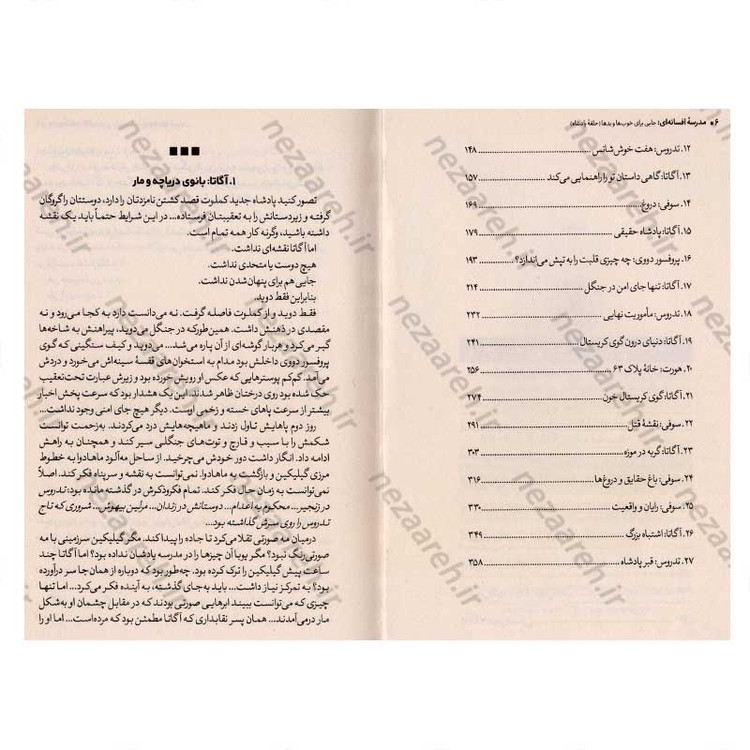 ۶ ● مدرسهٔ افسانه‌ای: جایی برای خوب‌ها و بدها (حلقهٔ پادشاه)
۱۲. تدروس: هفت خوش‌شانس ۱۴۸
۱۳. آگاتا: گاهی داستان تو را راهنمایی می‌کند ۱۵۷
۱۴. سوفی: دروغ ۱۶۹
۱۵. آگاتا: پادشاه حقیقی ۱۷۹
۱۶. پروفسور دووی: چه چیزی قلبت را به تپش می‌اندازد؟ ۱۹۳
۱۷. آگاتا: تنها جای امن در جنگل ۲۱۴
۱۸. تدروس: مأموریت نهایی ۲۳۲
۱۹. آگاتا: دنیای درون گوی کریستال ۲۴۱
۲۰. هورت: خانهٔ پلاک ۶۳ ۲۵۶
۲۱. آگاتا: گوی کریستال خون ۲۷۴
۲۲. سوفی: نقشهٔ قتل ۲۹۱
۲۳. آگاتا: گربه در موزه ۳۰۳
۲۴. سوفی: باغ حقایق و دروغ‌ها ۳۱۶
۲۵. سوفی: رایان و واقعیت ۳۳۰
۲۶. آگاتا: اشتباه بزرگ ۳۴۹
۲۷. تدروس: قبر پادشاه ۳۵۸
۱. آگاتا: بانوی دریاچه و مار
تصور کنید پادشاه جدید کملوت قصد کشتن نامزدتان را دارد، دوستتان را گروگان
گرفته و زیردستانش را به تعقیبتان فرستاده... در این شرایط حتماً باید یک نقشه
داشته باشید، وگرنه کار همه تمام است.
اما آگاتا نقشه‌ای نداشت.
هیچ دوست یا متحدی نداشت.
جایی هم برای پنهان‌شدن نداشت.
بنابراین فقط دوید.
فقط دوید و از کملوت فاصله گرفت. نه می‌دانست دارد به کجا می‌رود و نه
مقصدی در ذهنش داشت. همین‌طور که در جنگل می‌دوید، پیراهنش به شاخه‌ها
گیر می‌کرد و هربار گوشه‌ای از آن پاره می‌شد... می‌دوید و کیف سنگینی که گوی
پروفسور دووی داخلش بود مدام به استخوان‌های قفسهٔ سینه‌اش می‌خورد و دردش
می‌آمد. کم‌کم پوسترهایی که عکس او رویش خورده بود و زیرش عبارت تحت‌تعقیب
حک شده بود روی درختان ظاهر شدند. این یک هشدار بود که سرعت پخش اخبار
بیشتر از سرعت پاهای خسته و زخمی اوست. دیگر هیچ جای امنی وجود نداشت...
روز دوم پاهایش تاول زدند و ماهیچه‌هایش درد می‌کردند. به‌زحمت توانست
شکمش را با سیب و قارچ و توت‌های جنگلی سیر کند و همچنان به راهش
ادامه داد. انگار داشت دور خودش می‌چرخید. از ساحل مه‌آلود ماهادوا به خطوط
مرزی گیلیکین و بازگشت به ماهادوا. نمی‌توانست به نقشه و سرپناه فکر کند. اصلاً
نمی‌توانست به زمان حال فکر کند. تمام فکروذکرش در گذشته مانده بود: تدروس
در زنجیر... محکوم به اعدام... دوستانش در زندان... مرلین بیهوش... شروری که تاج
تدروس را روی سرش گذاشته بود...
درمیان مه صورتی تقلا می‌کرد تا جاده را پیدا کند. مگر گیلیکین سرزمینی با مه
صورتی‌رنگ نبود؟ مگر یوبا آن چیزها را در مدرسه یادشان نداده بود؟ اما آگاتا چند
ساعت پیش گیلیکین را ترک کرده بود. چه‌طور بود که دوباره از همان جا سر درآورده
بود؟ به تمرکز نیاز داشت... باید به‌جای گذشته، به آینده فکر می‌کرد... اما تنها
چیزی که می‌توانست ببیند ابرهایی صورتی بودند که در مقابل چشمان او به‌شکل
مار درمی‌آمدند... همان پسر نقابداری که آگاتا مطمئن بود که مرده است... اما او را
nezaareh.ir